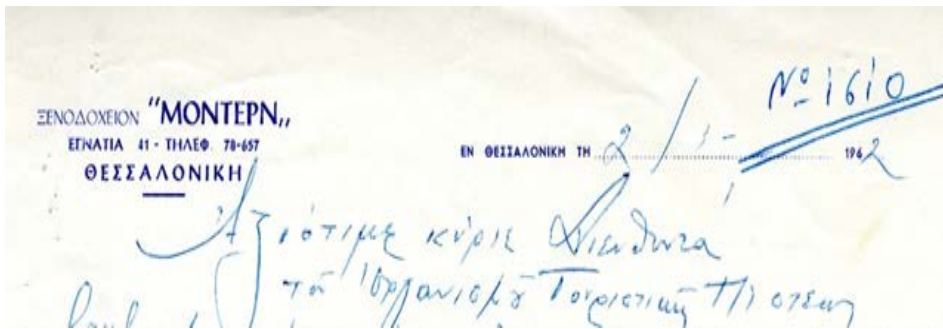 Nº 1610
ΞΕΝΟΔΟΧΕΙΟΝ "ΜΟΝΤΕΡΝ„
ΕΓΝΑΤΙΑ 41 - ΤΗΛΕΦ. 78-657
ΘΕΣΣΑΛΟΝΙΚΗ
ΕΝ ΘΕΣΣΑΛΟΝΙΚΗ ΤΗ 2/ 1962
Ἀξιότιμε κύριε Διευθυντά
τοῦ Ὀργανισμοῦ Τουριστικῆς Πίστεως